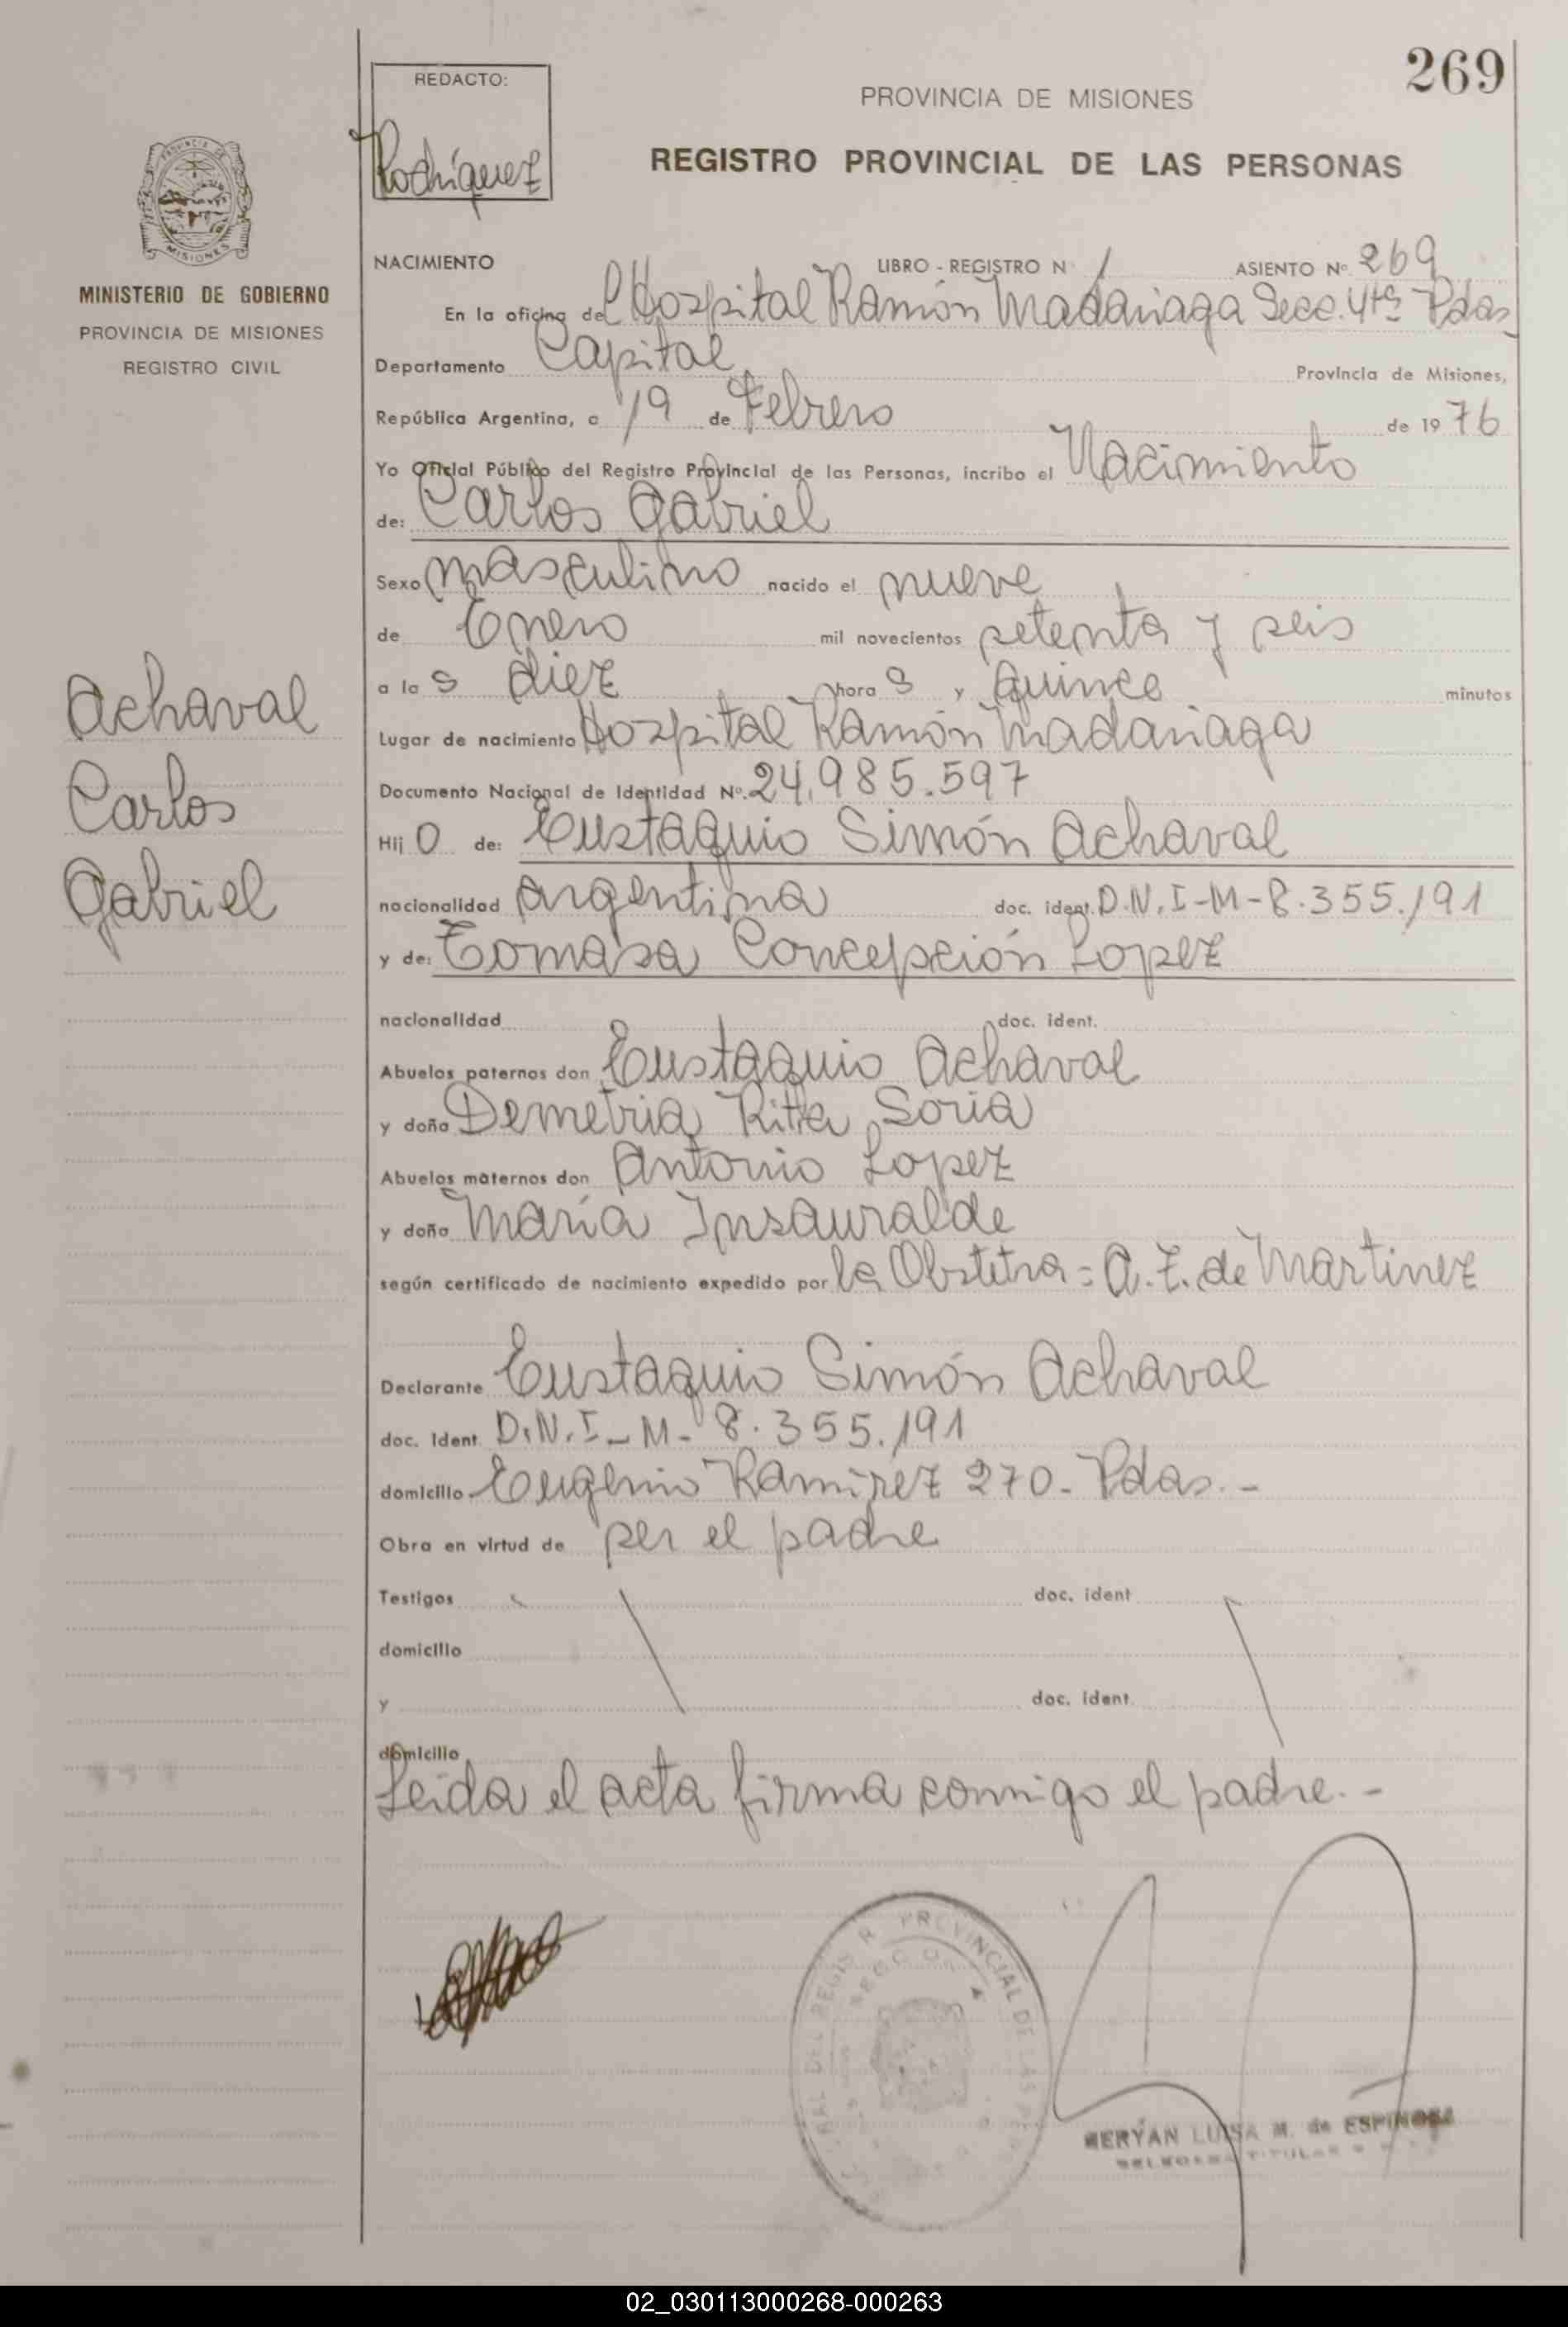 269
REDACTO:
Rodríguez
PROVINCIA DE MISIONES
REGISTRO PROVINCIAL DE LAS PERSONAS
MISIONES
MINISTERIO DE GOBIERNO
PROVINCIA DE MISIONES
REGISTRO CIVIL
NACIMIENTO LIBRO - REGISTRO N° 1 ASIENTO N° 269
En la oficina del Hospital Ramón Madariaga Secc. 4ta Pdas
Departamento Capital Provincia de Misiones,
República Argentina, a 19 de Febrero de 1976
Yo Oficial Público del Registro Provincial de las Personas, incribo el Nacimiento
de: Carlos Gabriel
Sexo masculino nacido el nueve
de Enero mil novecientos setenta y seis
a las diez horas y quince minutos
Lugar de nacimiento Hospital Ramón Madariaga
Documento Nacional de Identidad N° 24.985.597
Hijo de: Eustaquio Simón Achaval
nacionalidad argentina doc. ident. D.N.I-M-8.355.191
y de: Tomasa Concepción Lopez
nacionalidad doc. ident.
Abuelos paternos don Eustaquio Achaval
y doña Demetria Rita Soria
Abuelos maternos don Antonio Lopez
y doña María Insauralde
según certificado de nacimiento expedido por la Obstetra = A. Z. de Martinez
Declarante Eustaquio Simón Achaval
doc. Ident. D.N.I-M-8.355.191
domicilio Eugenio Ramirez 270- Pdas.-
Obra en virtud de ser el padre
Testigos doc. ident
domicilio
y doc. ident.
domicilio
Leida el acta firma conmigo el padre.-
Achaval
Carlos
Gabriel
PROVINCIAL DE LAS
MERYAN LUISA M. de ESPINOSA
TITULAR
02_030113000268-000263